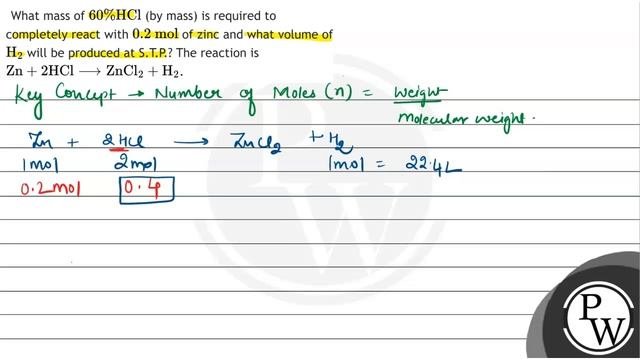 What mass of 60%HCl (by mass) is required to
completely react with 0.2 mol of zinc and what volume of
H₂ will be produced at S.T.P.? The reaction is
Zn + 2HCl ⟶ ZnCl₂ + H₂.
Key Concept → Number of Moles (n) = weight
molecular weight.
Zn + 2HCl ⟶ ZnCl₂ + H₂
1mol 2mol 1mol = 22.4L
0.2mol 0.4
P
W
PW